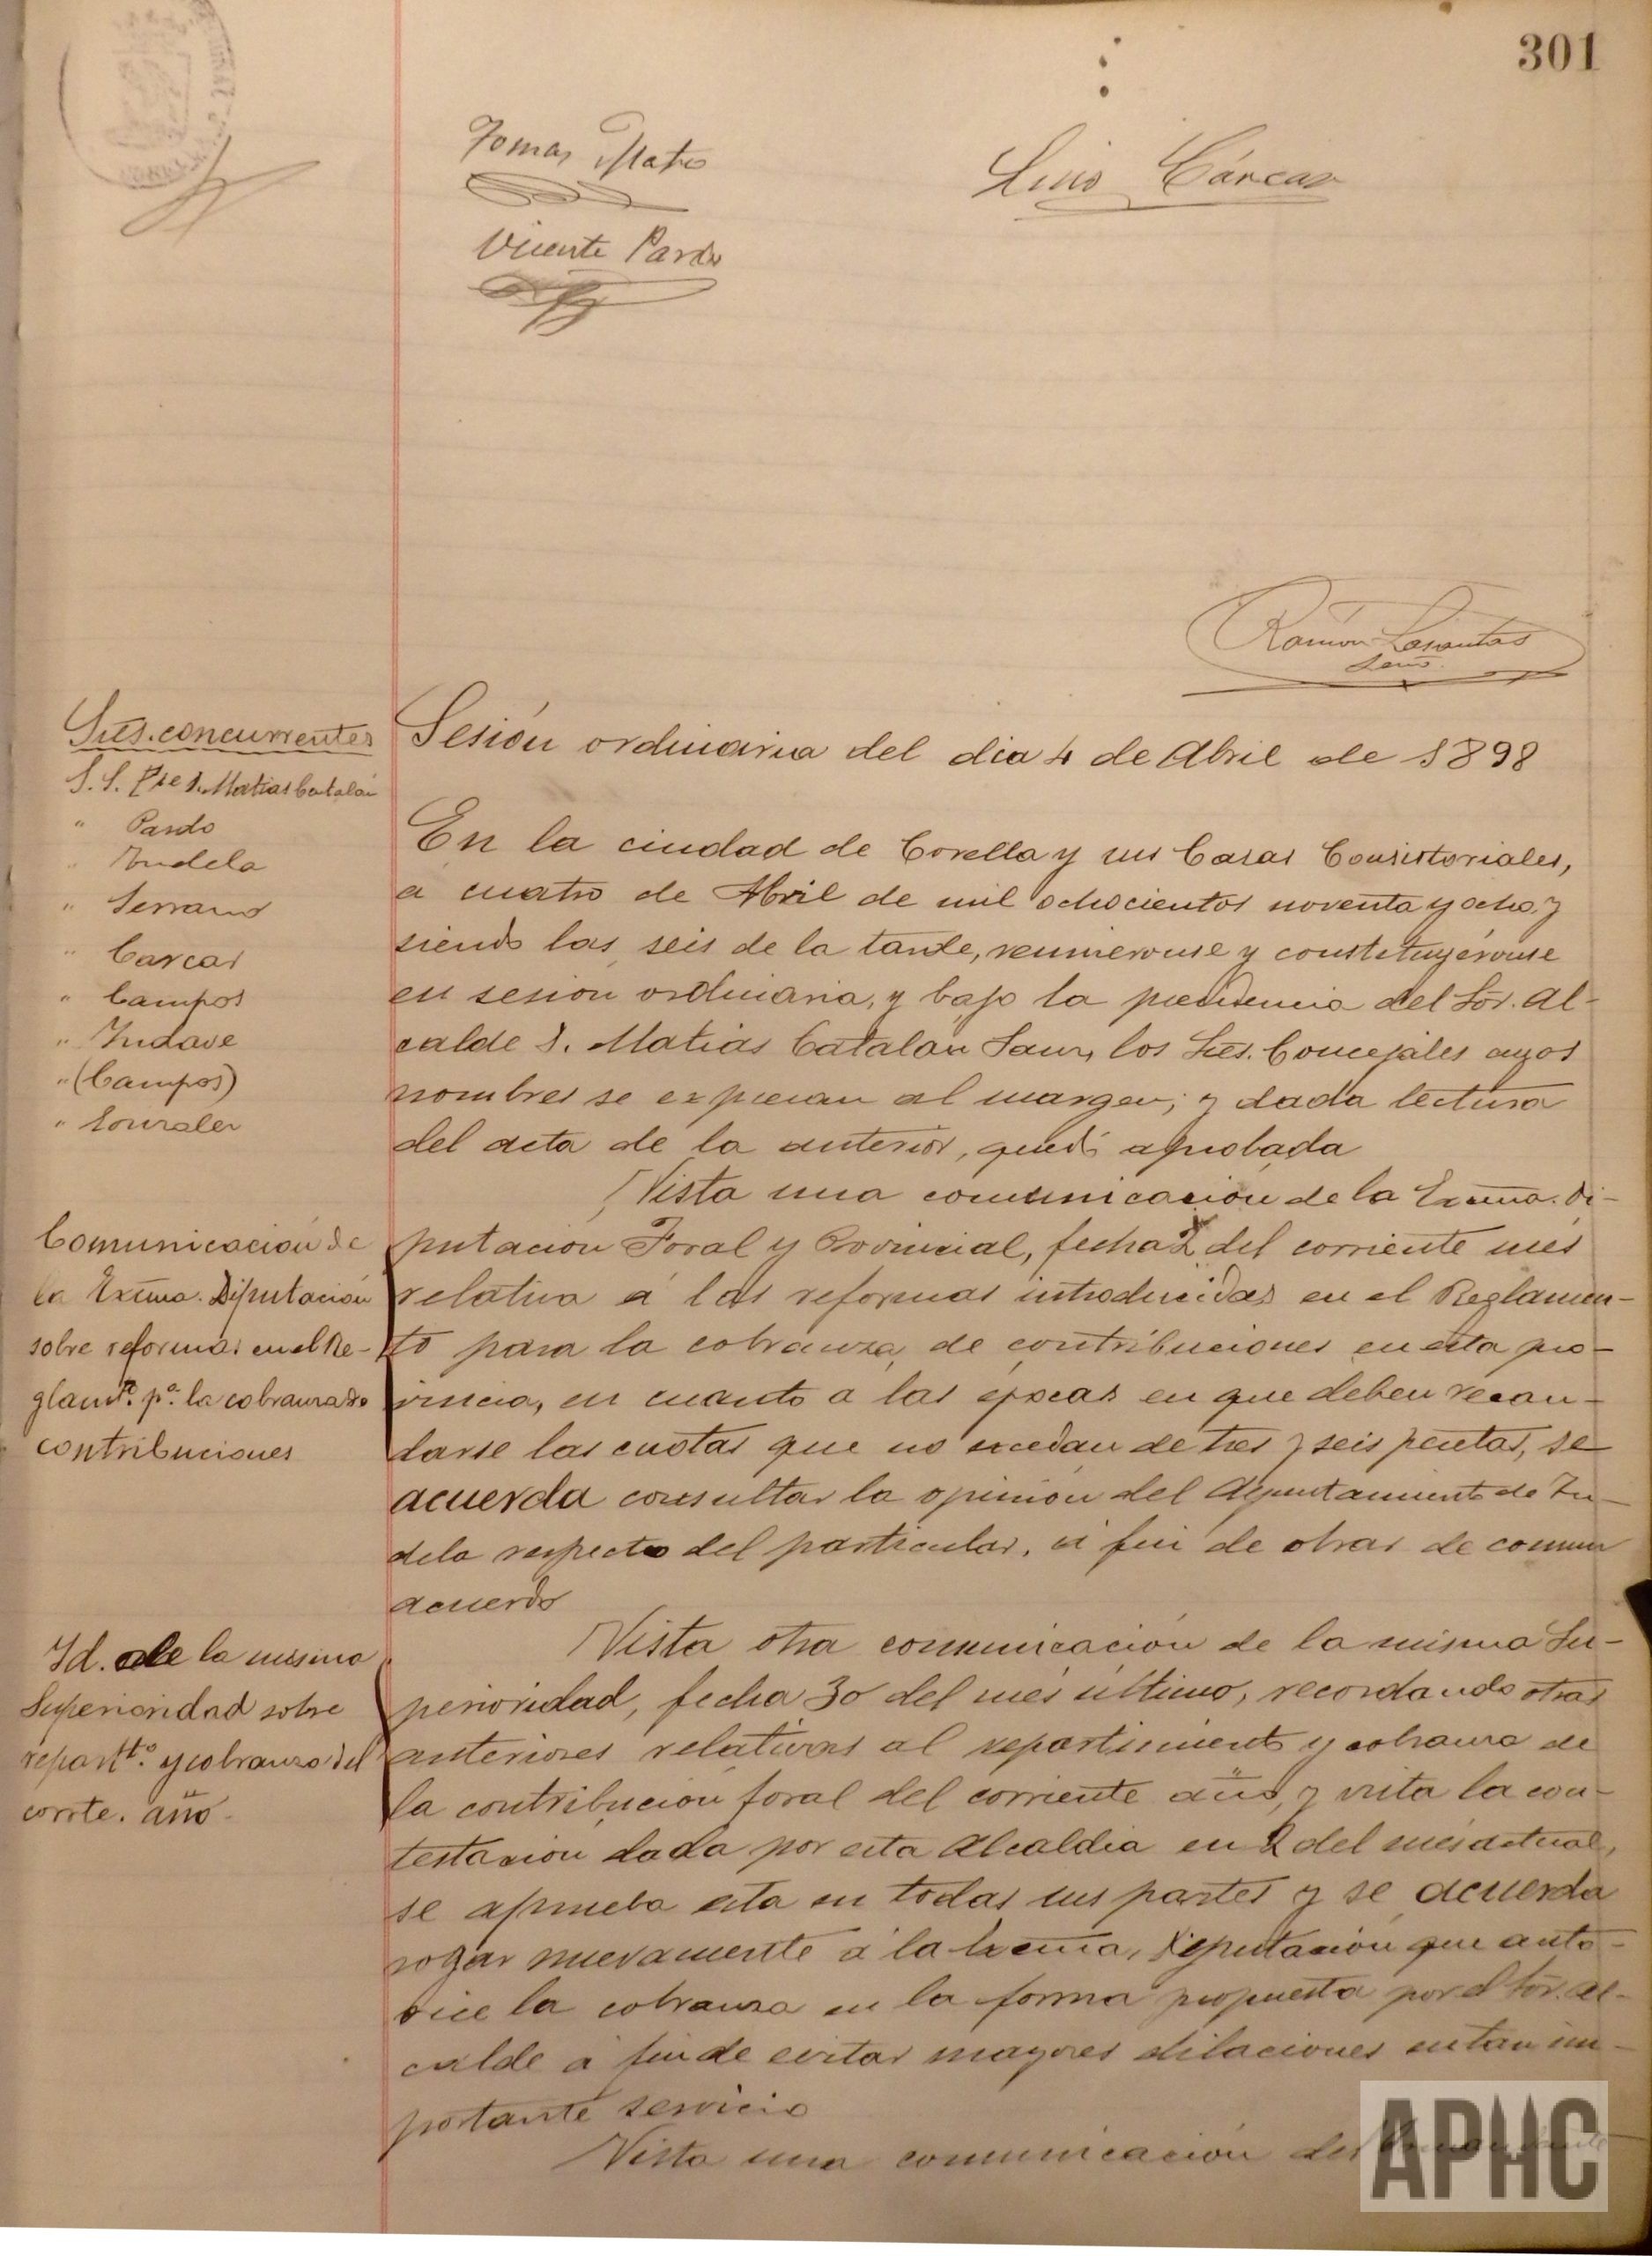 301
Tomas Mateo
Luis Cárcar
Vicente Pardo
Ramón Lasantas
Secrio.
Sres. concurrentes
S. S. Pte D. Matias Catalán
" Pardo
" Tudela
" Serrano
" Carcar
" Campos
" Yudave
" (Campos)
" Gonzalez
Sesión ordinaria del dia 4 de Abril de 1898
En la ciudad de Corella y sus Casas Consistoriales,
a cuatro de Abril de mil ochocientos noventa y ocho, y
siendo las seis de la tarde, reunieronse y constituyéronse
en sesion ordinaria, y bajo la presidencia del Sor. Al-
calde D. Matias Catalan Sanz, los Sres. Concejales cuyos
nombres se expresan al margen; y dada lectura
del acta de la anterior, quedó aprobada
Comunicación de
la Excma. Diputación
sobre reformas en el Re-
glamto. pa. la cobranza de
contribuciones
Vista una comunicacion de la Excma. Di-
putacion Foral y Provincial, fecha 2 del corriente mes
relativa á las reformas introducidas en el Reglamen-
to para la cobranza de contribuciones en esta pro-
vincia, en cuanto a las epocas en que deben recau-
darse las cuotas que no excedan de tres y seis pesetas, se
acuerda consultar la opinión del Ayuntamiento de Tu-
dela respecto del particular, á fin de obrar de comun
acuerdo
Id. de la misma
Superioridad sobre
repartto. y cobranza del
corrte. año
Vista otra comunicación de la misma Su-
perioridad, fecha 30 del mes último, recordando otras
anteriores relativas al repartimiento y cobranza de
la contribución foral del corriente año, y vista la con-
testacion dada por esta Alcaldia en 2 del mes actual,
se aprueba esta en todas sus partes y se acuerda
rogar nuevamente á la Excma. Diputación que auto-
rice la cobranza en la forma propuesta por el Sor. Al-
calde á fin de evitar mayores dilaciones en tan im-
portante servicio
Vista una comunicación del
APHC